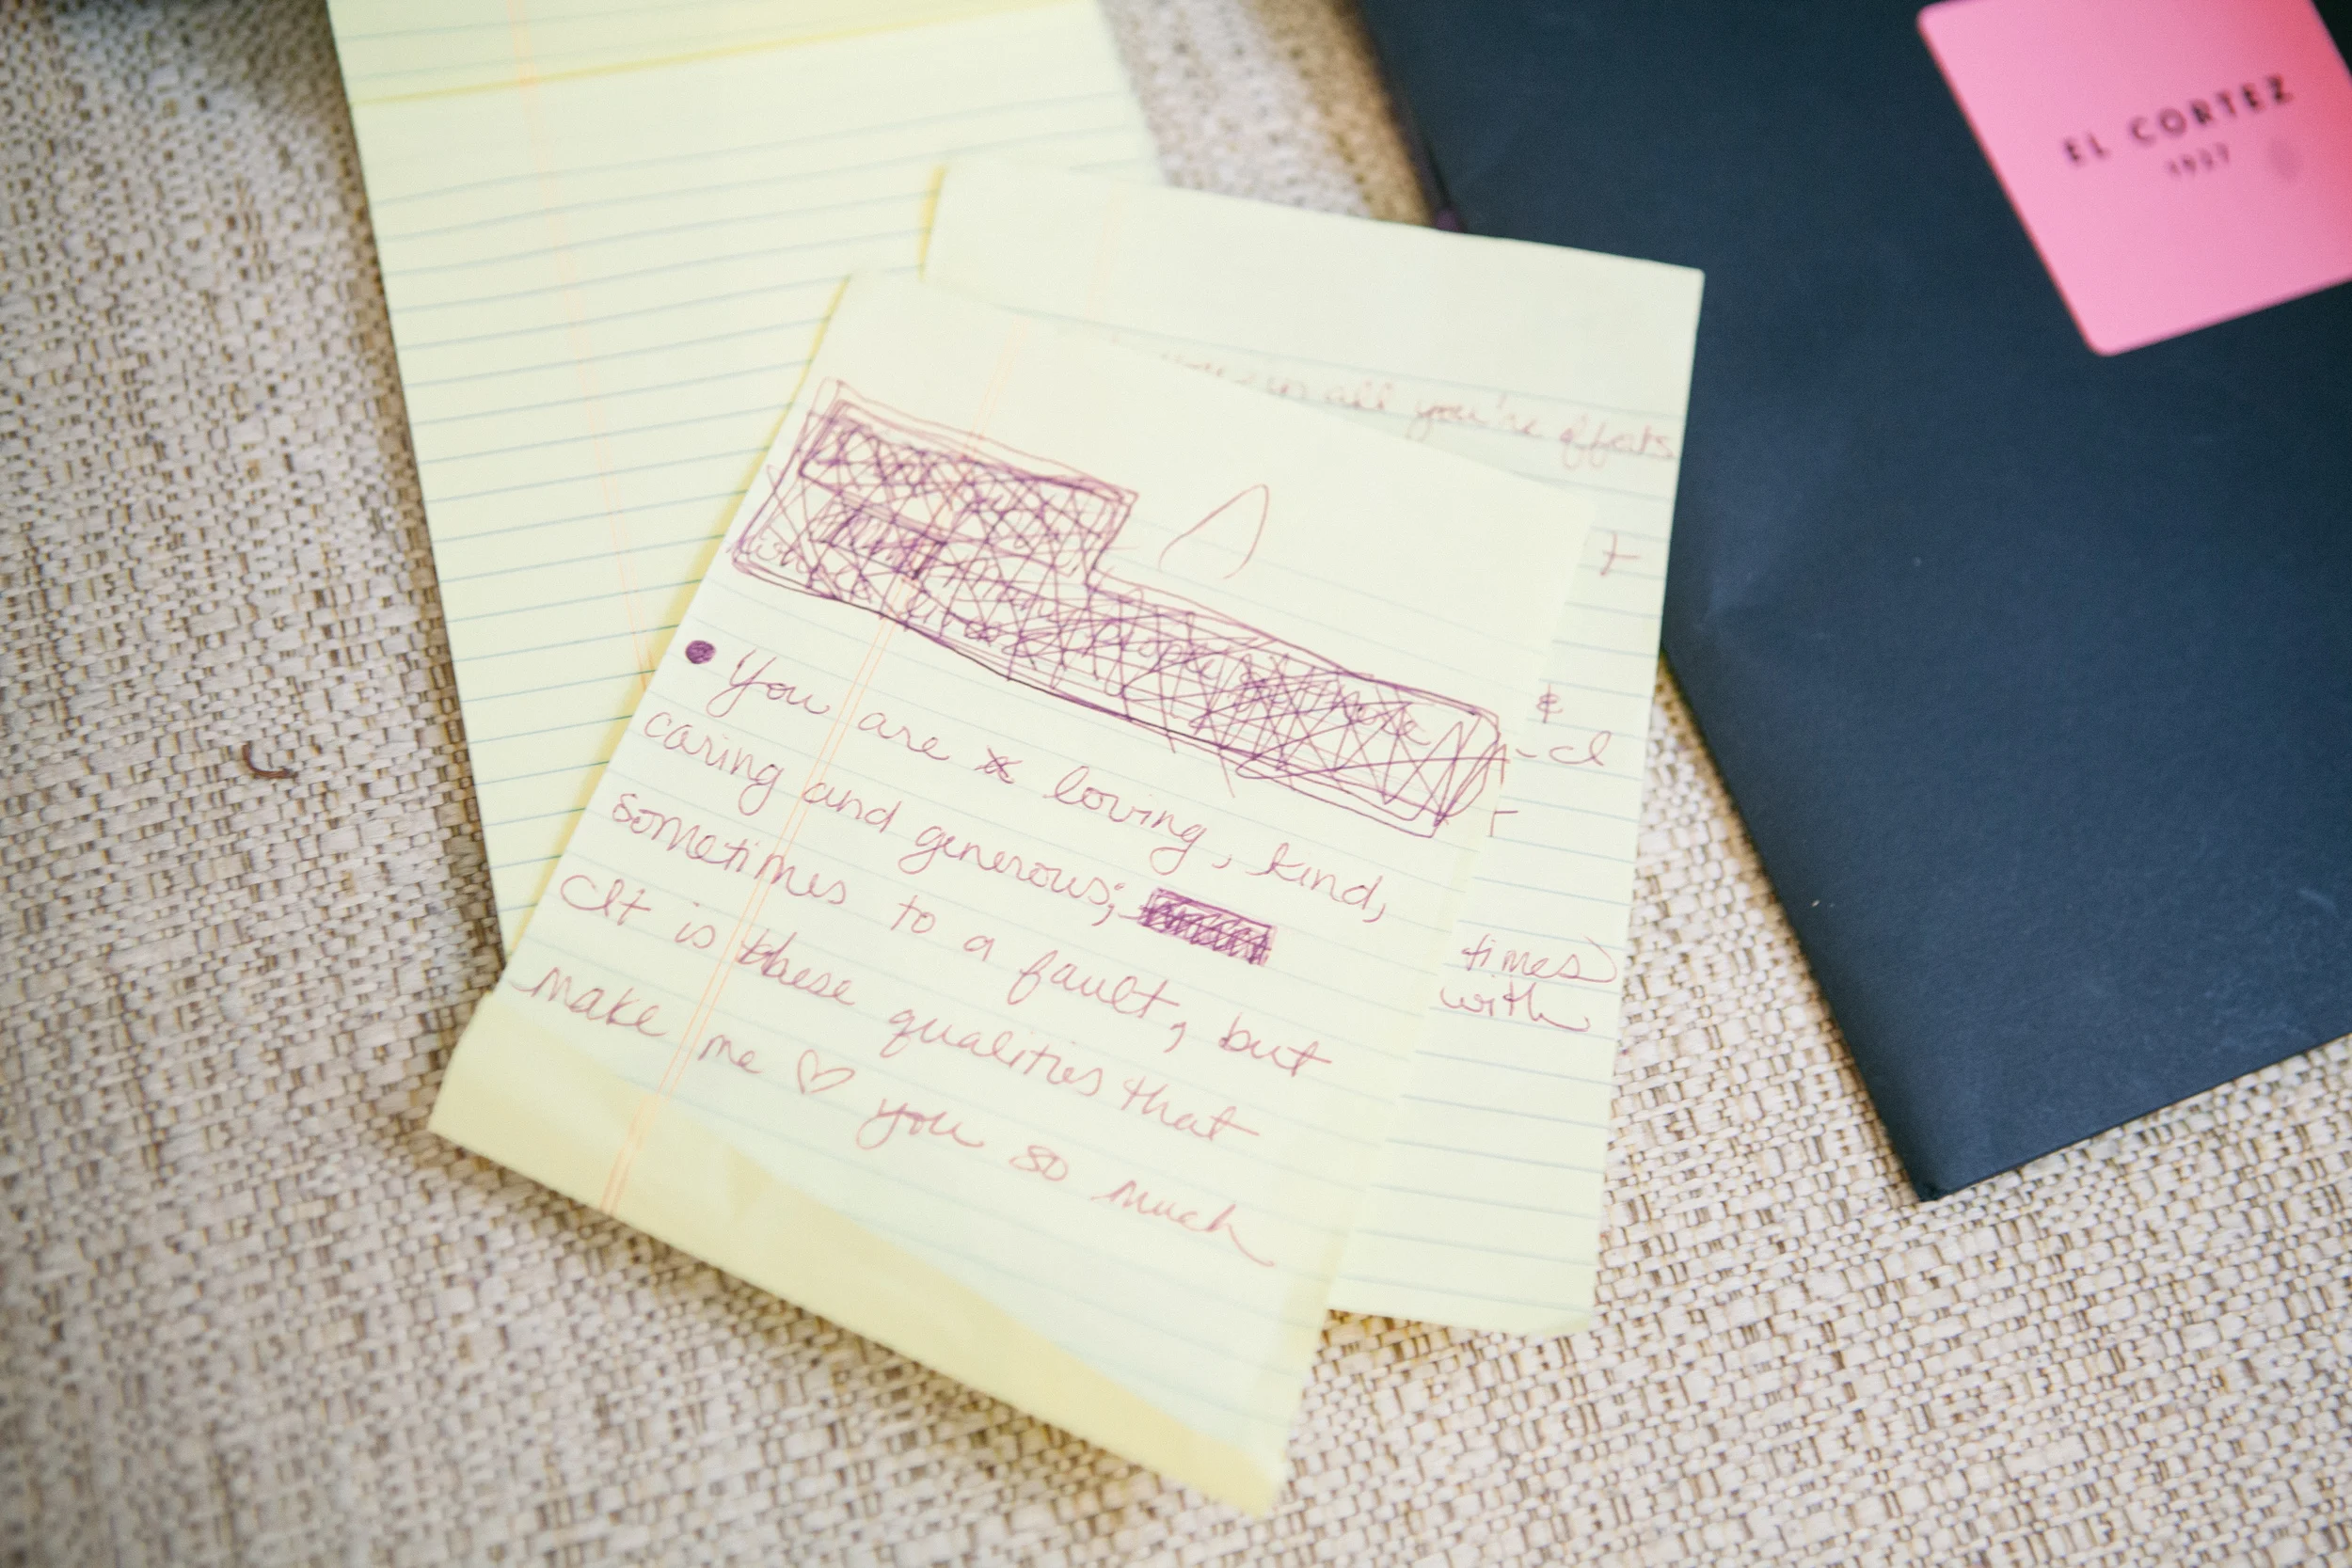 EL CORTEZ
1927
in all you're efforts
&
times
with
You are loving, kind,
caring and generous;
sometimes to a fault, but
It is these qualities that
make me ♡ you so much